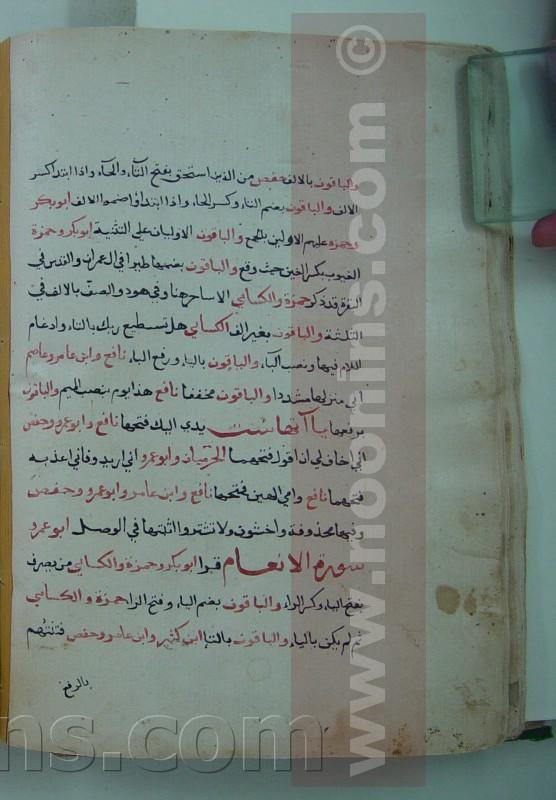 والباقون بالالف حفص من الذين استحق بفتح التاء والحاء واذا ابتدا كسر
الالف والباقون بضم التاء وكسر الحاء واذا ابتدأوا ضموا الالف ابوبكر
وحمزة عليهم الاولين بالجمع والباقون الاوليان على التثنية ابوبكر وحمزة
الغيوب بكسر الغين حيث وقع والباقون بضمها طيرا في ال عمران والقدس في
البقرة قد ذكر حمزة والكسائي الا ساحر هنا وفي هود والصف بالالف في
الثلثة والباقون بغير الف الكسائي هل تستطيع ربك بالتاء وادغام
اللام فيها ونصب الباء والباقون بالياء ورفع الباء نافع وابن عامر وعاصم
اني منزلها مشددا والباقون مخففا نافع هذا يوم بنصب الميم والباقون
برفعها ياآتها ست يدي اليك فتحها نافع وابوعمرو وحفص
اني اخاف لي ان اقول فتحهما الحرميان وابوعمرو اني اريد وفاني اعذبه
فتحهما نافع وامي الهين فتحها نافع وابن عامر وابوعمرو وحفص
وفيها محذوفة واخشون ولا تشتروا اثبتها في الوصل ابوعمرو
سورة الانعام قرا ابوبكر وحمزة والكسائي من يصرف
بفتح الياء وكسر الراء والباقون بضم الياء وفتح الرا حمزة والكسائي
ثم لم يكن بالياء والباقون بالتا ابن كثير وابن عامر وحفص فتنتهم
بالرفع
www.noorlins.com ©
ns.com